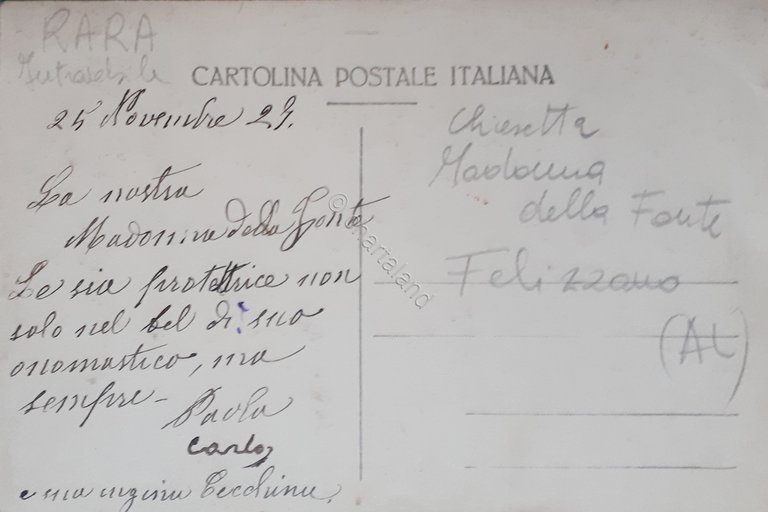 RARA
CARTOLINA POSTALE ITALIANA
25 Novembre 29.
La nostra
Madonnina della Fonte
Le sia protettrice non
solo nel bel dì suo
onomastico, ma
sempre -
Paola
Carlo
e sua
Chiesetta
Madonna
della Fonte
Felizzano
(AL)
© marialand